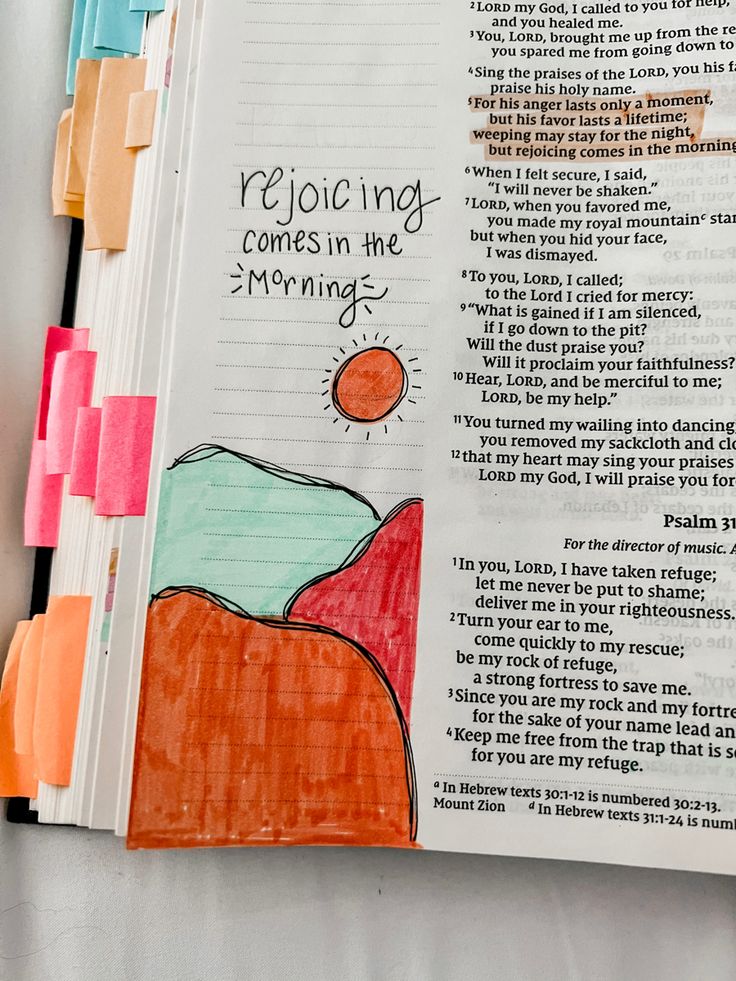 rejoicing
comes in the
Morning
²LORD my God, I called to you for help,
and you healed me.
³You, LORD, brought me up from the re
you spared me from going down to
⁴Sing the praises of the LORD, you his fa
praise his holy name.
⁵For his anger lasts only a moment,
but his favor lasts a lifetime;
weeping may stay for the night,
but rejoicing comes in the morning
⁶When I felt secure, I said,
"I will never be shaken."
⁷LORD, when you favored me,
you made my royal mountainᶜ stan
but when you hid your face,
I was dismayed.
⁸To you, LORD, I called;
to the Lord I cried for mercy:
⁹"What is gained if I am silenced,
if I go down to the pit?
Will the dust praise you?
Will it proclaim your faithfulness?
¹⁰Hear, LORD, and be merciful to me;
LORD, be my help."
¹¹You turned my wailing into dancing;
you removed my sackcloth and clo
¹²that my heart may sing your praises
LORD my God, I will praise you for
Psalm 31
For the director of music. A
¹In you, LORD, I have taken refuge;
let me never be put to shame;
deliver me in your righteousness.
²Turn your ear to me,
come quickly to my rescue;
be my rock of refuge,
a strong fortress to save me.
³Since you are my rock and my fortre
for the sake of your name lead an
⁴Keep me free from the trap that is s
for you are my refuge.
ᵃ In Hebrew texts 30:1-12 is numbered 30:2-13.
Mount Zion ᵈ In Hebrew texts 31:1-24 is num